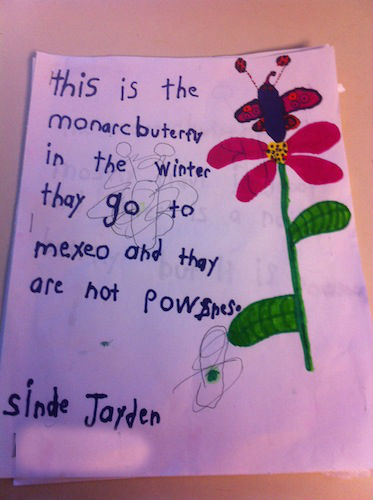 this is the
monarcbuterfy
in the winter
thay go to
mexeo and thay
are not powsnes.
sinde Jayden